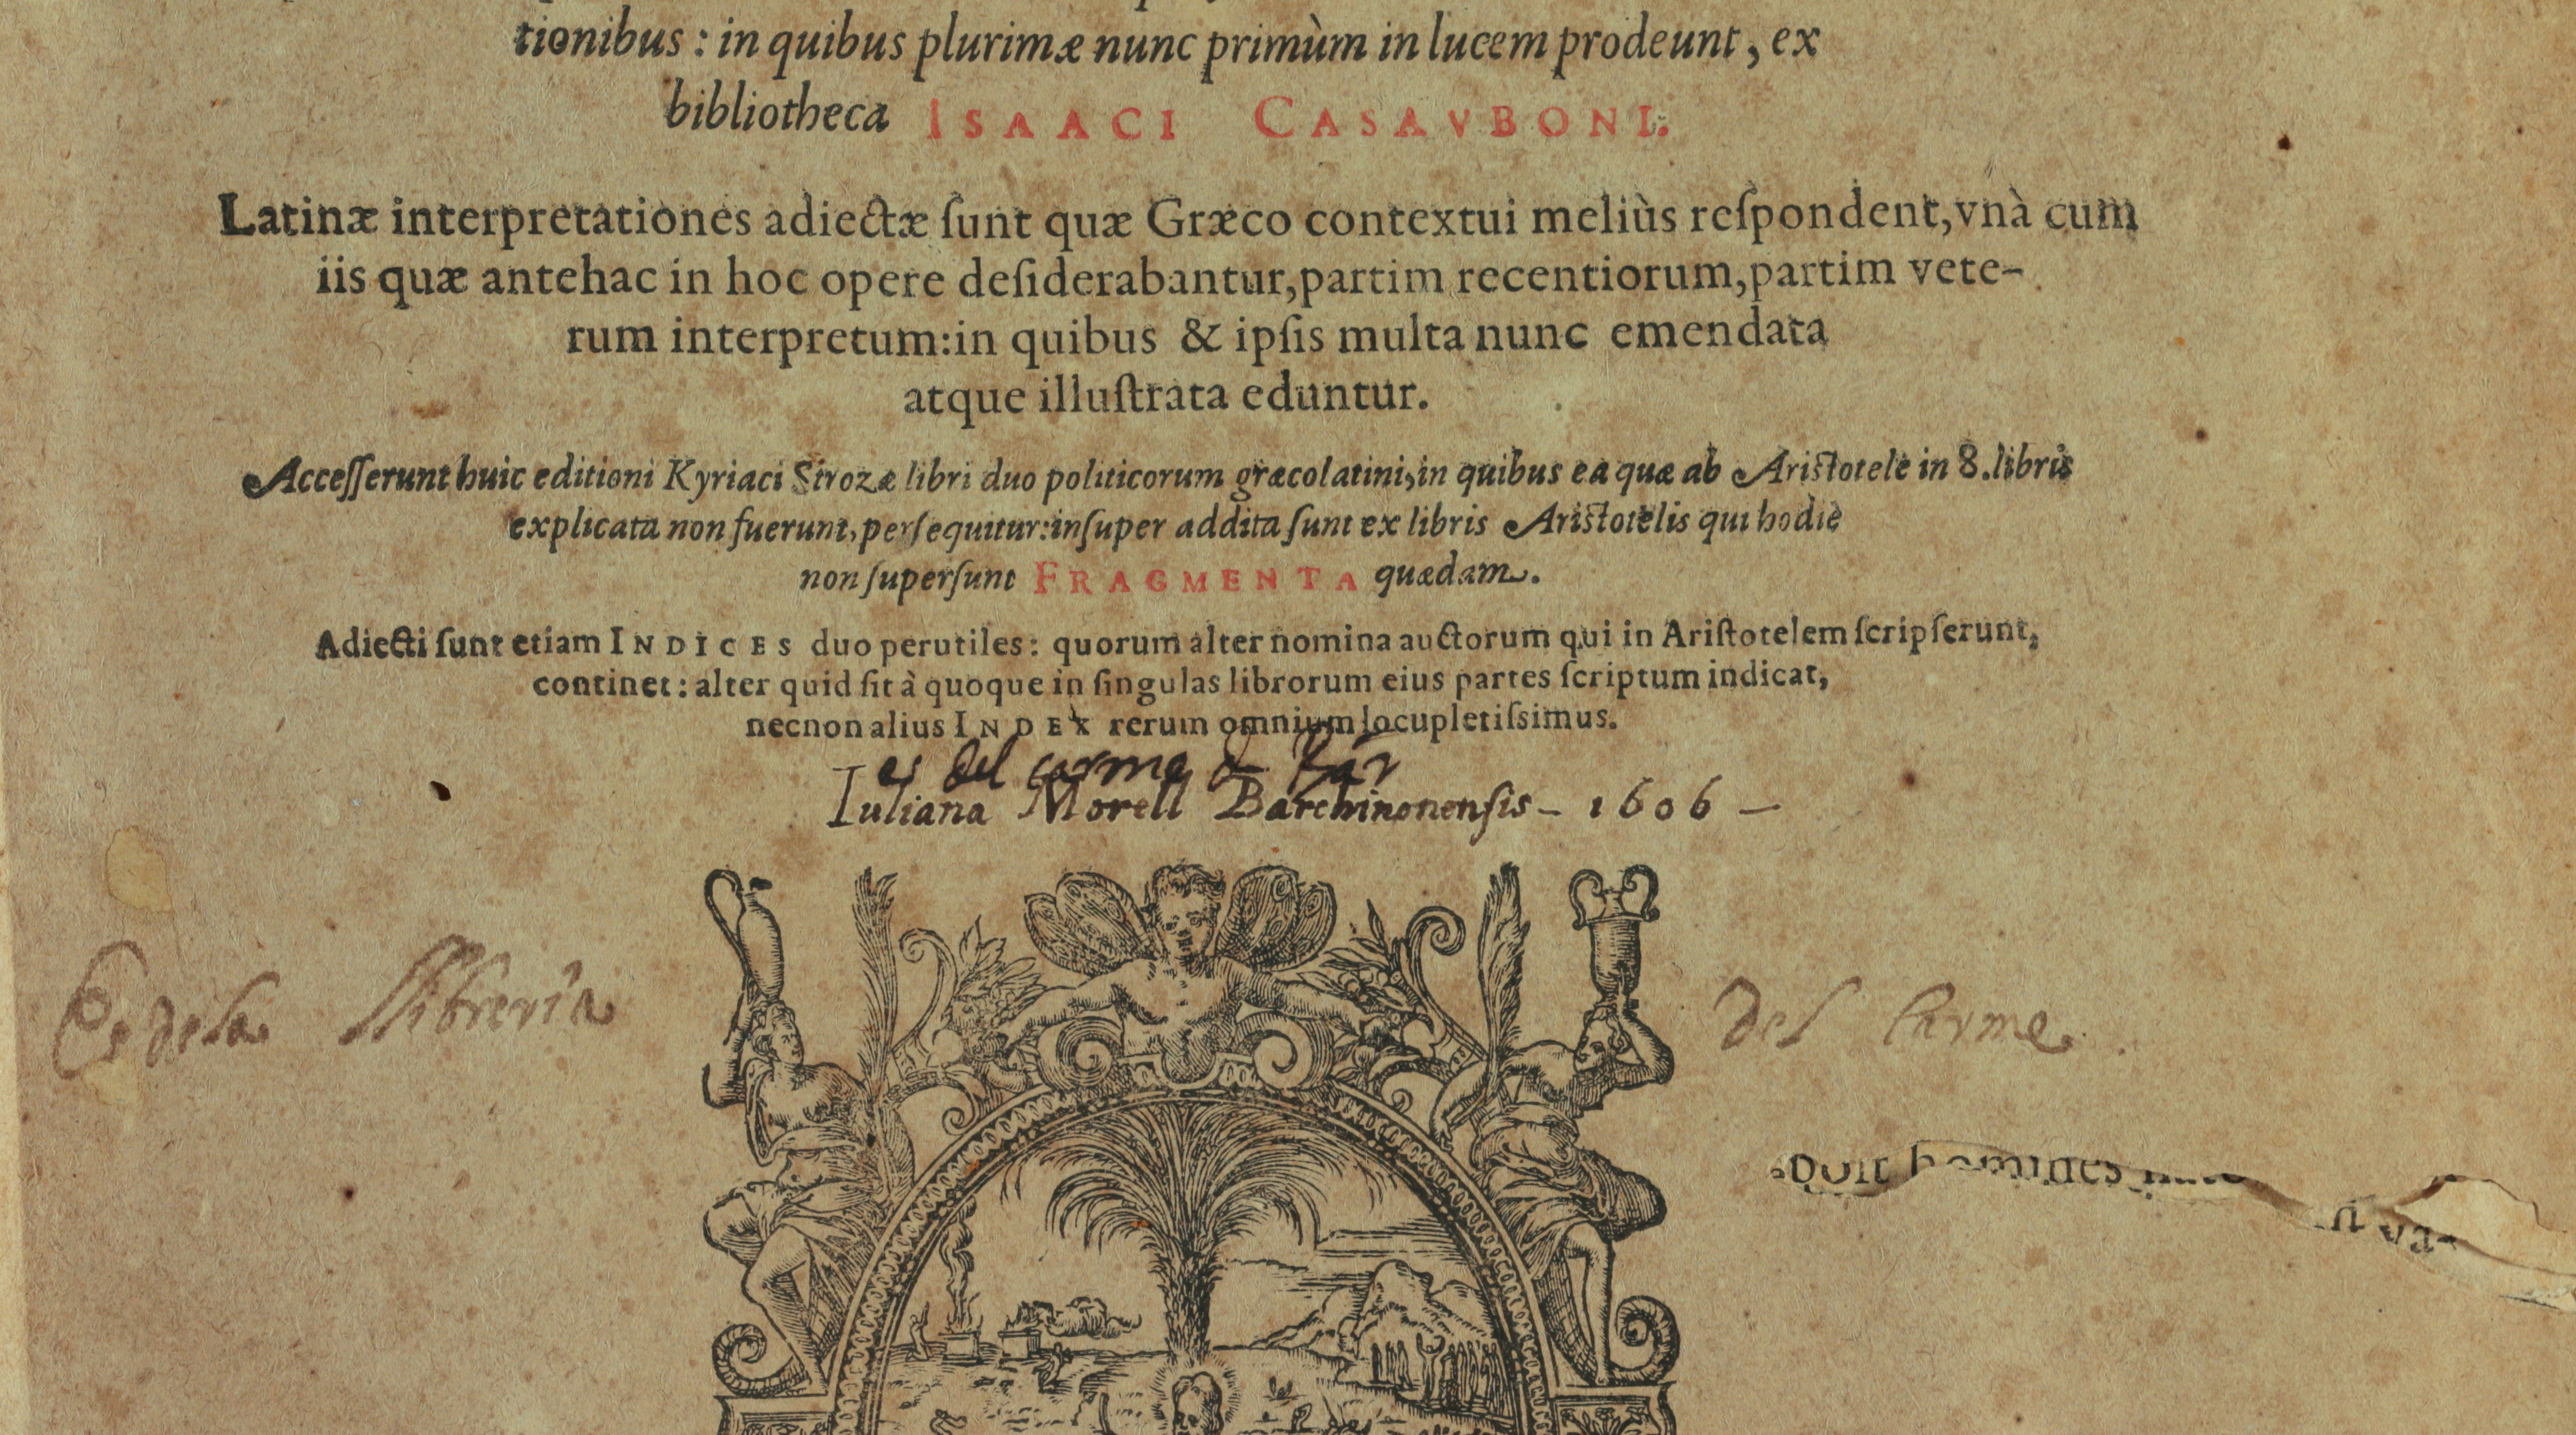 tionibus : in quibus plurimæ nunc primùm in lucem prodeunt, ex
bibliotheca ISAACI CASAVBONI.
Latinæ interpretationes adiectæ ſunt quæ Græco contextui meliùs reſpondent, vnà cum
iis quæ antehac in hoc opere deſiderabantur, partim recentiorum, partim vete-
rum interpretum: in quibus & ipſis multa nunc emendata
atque illuſtrata eduntur.
Acceſſerunt huic editioni Kyriaci Strozæ libri duo politicorum græcolatini, in quibus ea quæ ab Ariſtotele in 8. libris
explicata non fuerunt, perſequitur: inſuper addita ſunt ex libris Ariſtotelis qui hodie
non ſuperſunt FRAGMENTA quædam.
Adiecti ſunt etiam INDICES duo perutiles: quorum alter nomina auctorum qui in Ariſtotelem ſcripſerunt,
continet: alter quid ſit à quoque in ſingulas librorum eius partes ſcriptum indicat,
necnon alius INDEX rerum omnium locupletiſsimus.
es del carme d Bar
Iuliana Morell Barchinonenſis – 1606 –
Es dela llibreria del Carme.
homines